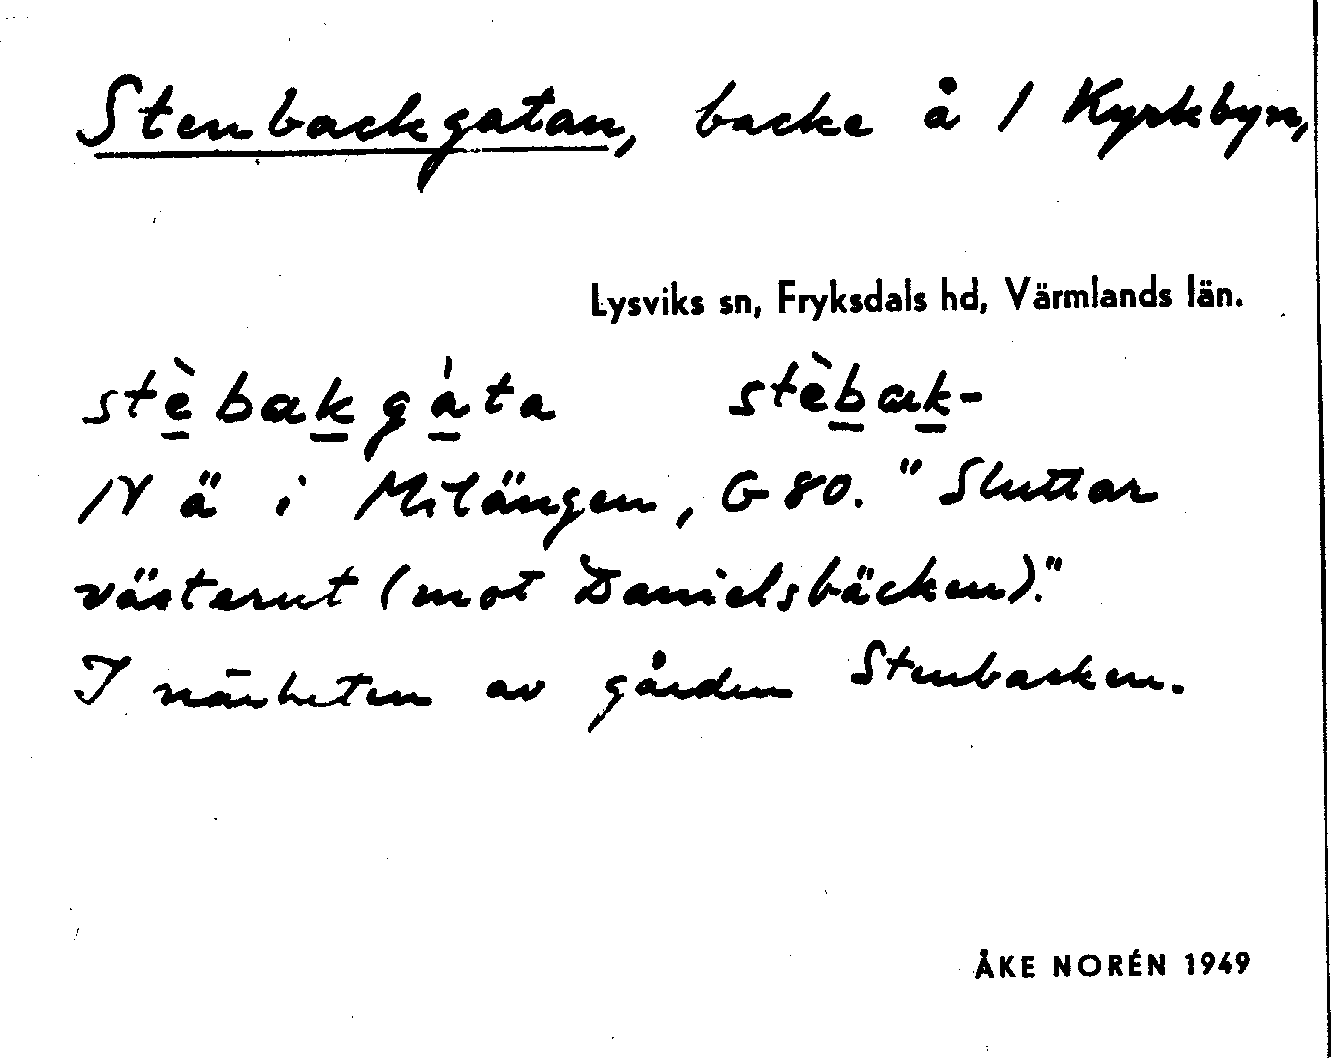 Stenbackgatan, backe å 1 Kyrkbyn,
Lysviks sn, Fryksdals hd, Värmlands län.
stèbakgáta stèbak-
N ä i Milängen, G 80. "Sluttar
västerut (mot Danielsbäcken)."
I närheten av gården Stenbacken.
ÅKE NORÉN 1949